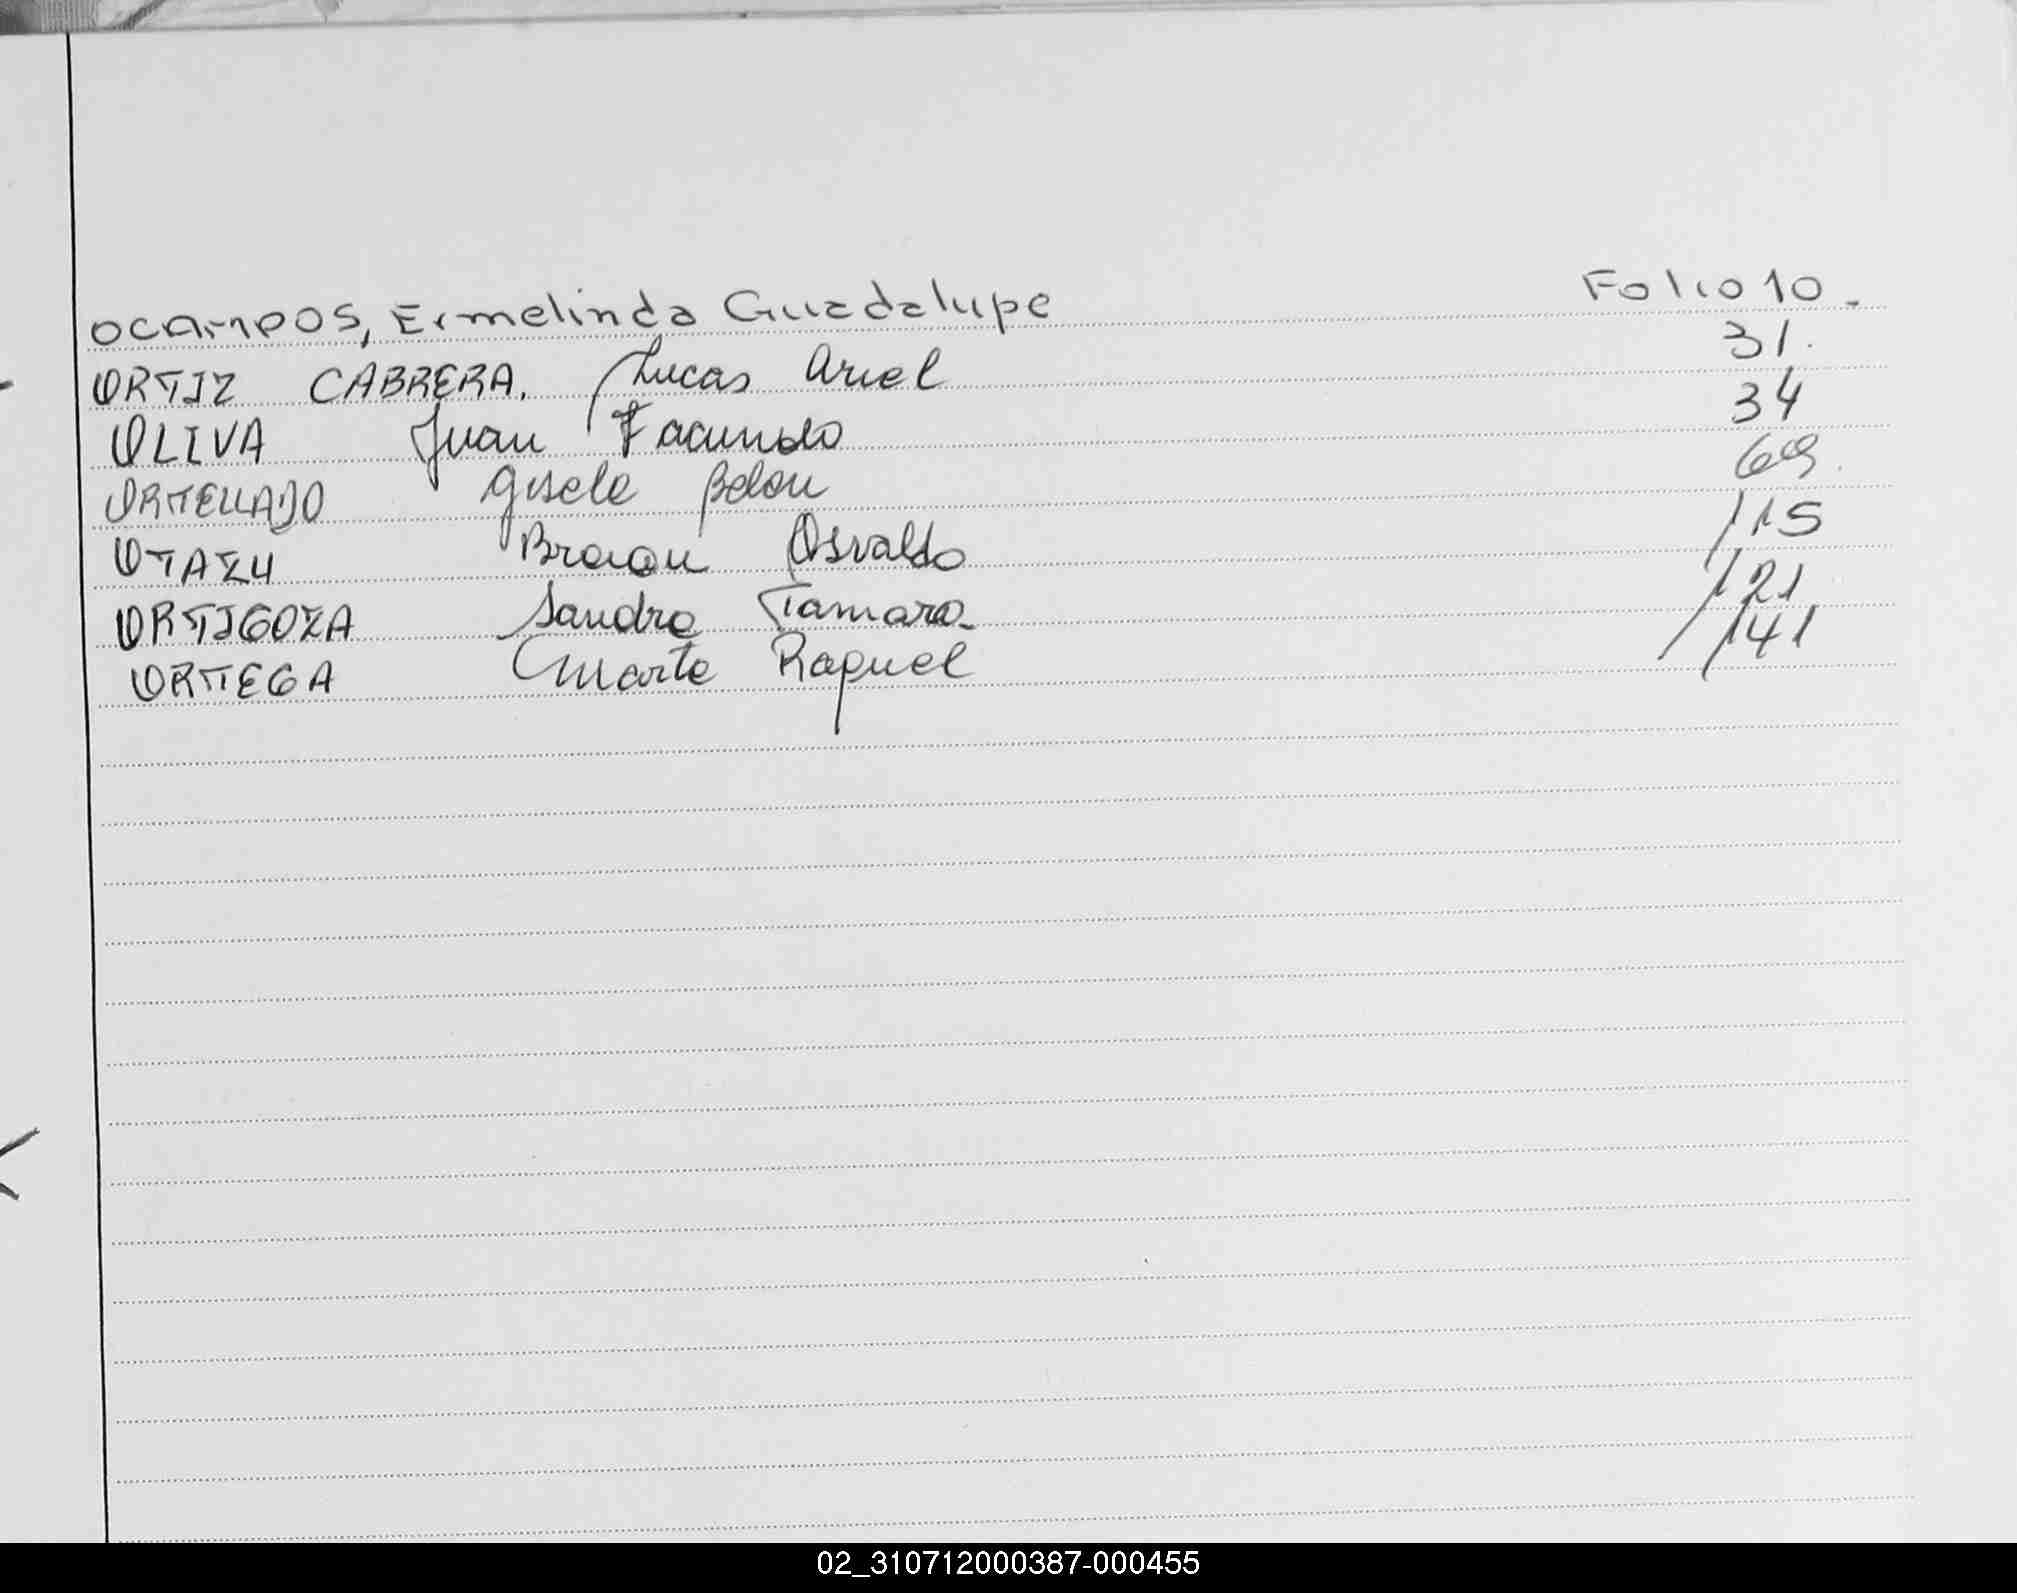 Ocampos, Ermelinda Guadalupe Folio 10.
ORTIZ CABRERA. Lucas Ariel 31.
OLIVA Juan Facundo 34
ORTELLADO Gisele Belen 69.
OTAZU Braian Osvaldo 115
ORTIGOZA Sandra Tamara 121
ORTEGA Marta Raquel 141
02_310712000387-000455